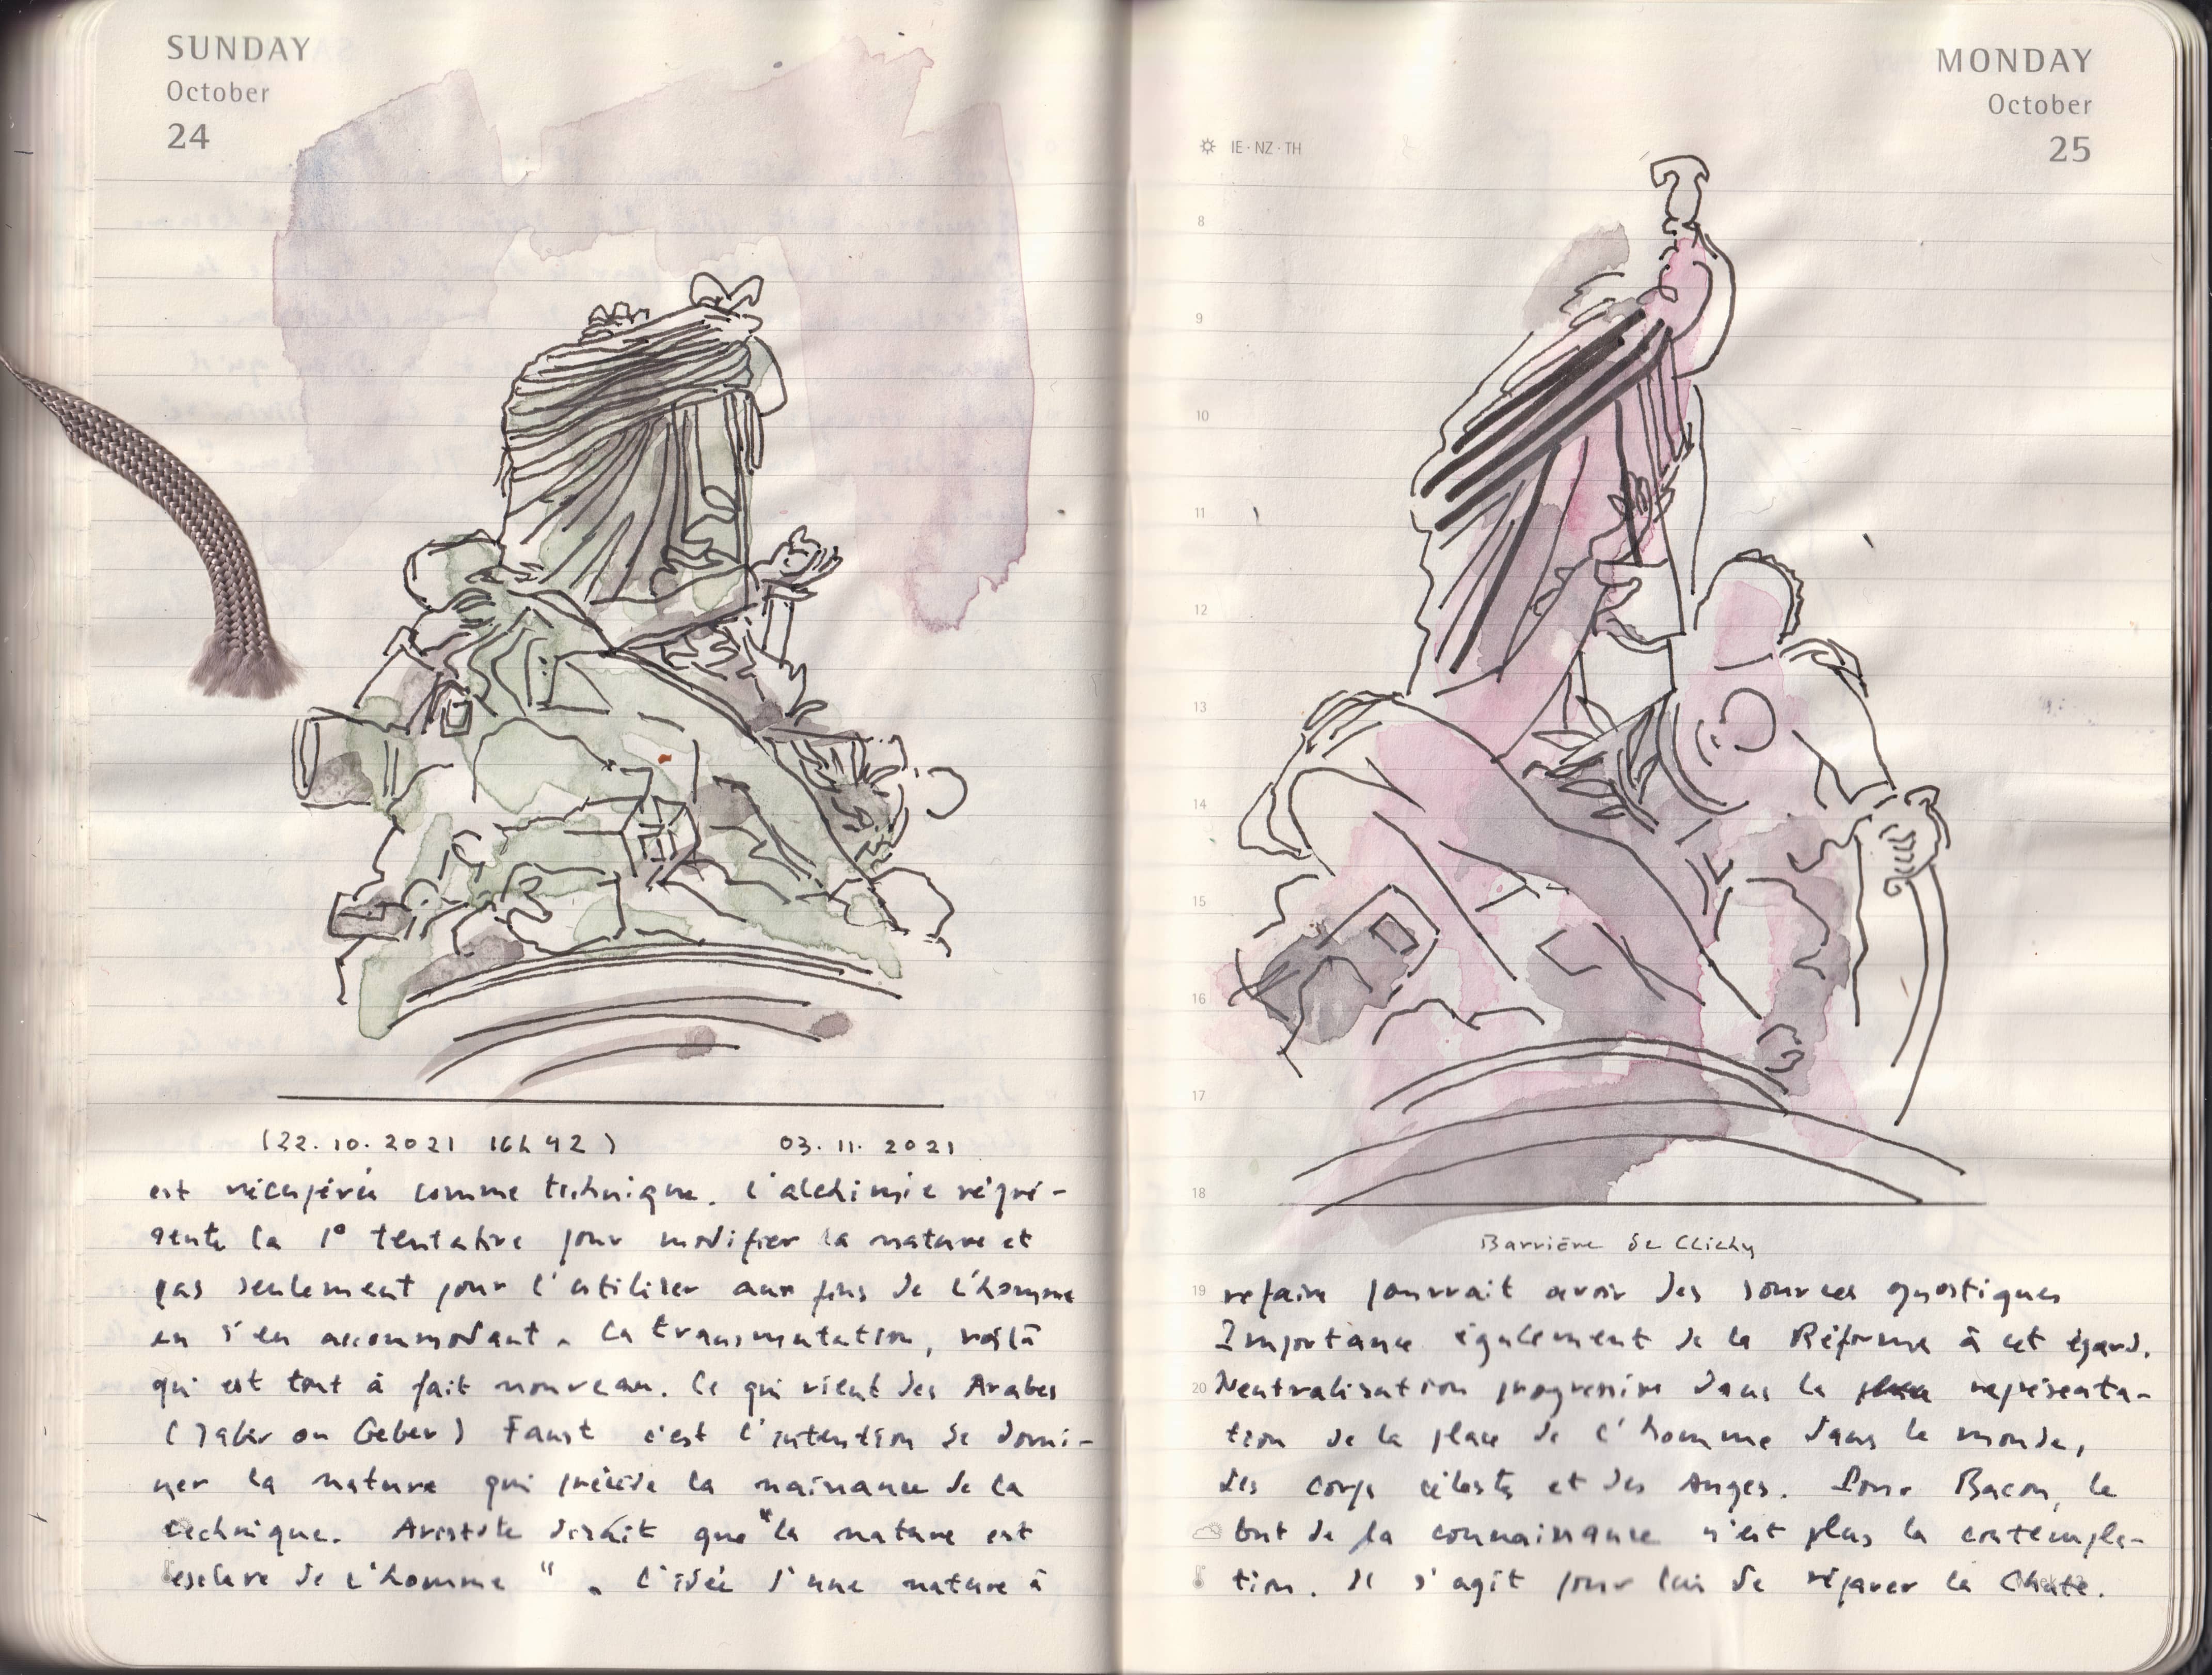 SUNDAY
October
24
(22.10.2021 16h42) 03.11.2021
est récupérée comme technique. L'alchimie repré-
sente la 1° tentative pour modifier la nature et
pas seulement pour l'utiliser aux fins de l'homme
en s'en accommodant. La transmutation, voilà
qui est tout à fait nouveau. Ce qui vient des Arabes
(Jaber ou Geber) Faust c'est l'intention de domi-
ner la nature qui précède la naissance de la
technique. Aristote disait que "la nature est
esclave de l'homme". L'idée d'une nature à
MONDAY
October
25
IE · NZ · TH
8
9
10
11
12
13
14
15
16
17
18
Barrière de Clichy
19 refaire pourrait avoir des sources gnostiques
Importance également de la Réforme à cet égard.
20 Neutralisation progressive dans la représenta-
tion de la place de l'homme dans le monde,
des corps célestes et des Anges. Pour Bacon, le
but de la connaissance n'est plus la contempla-
tion. Il s'agit pour lui de réparer la Chute.